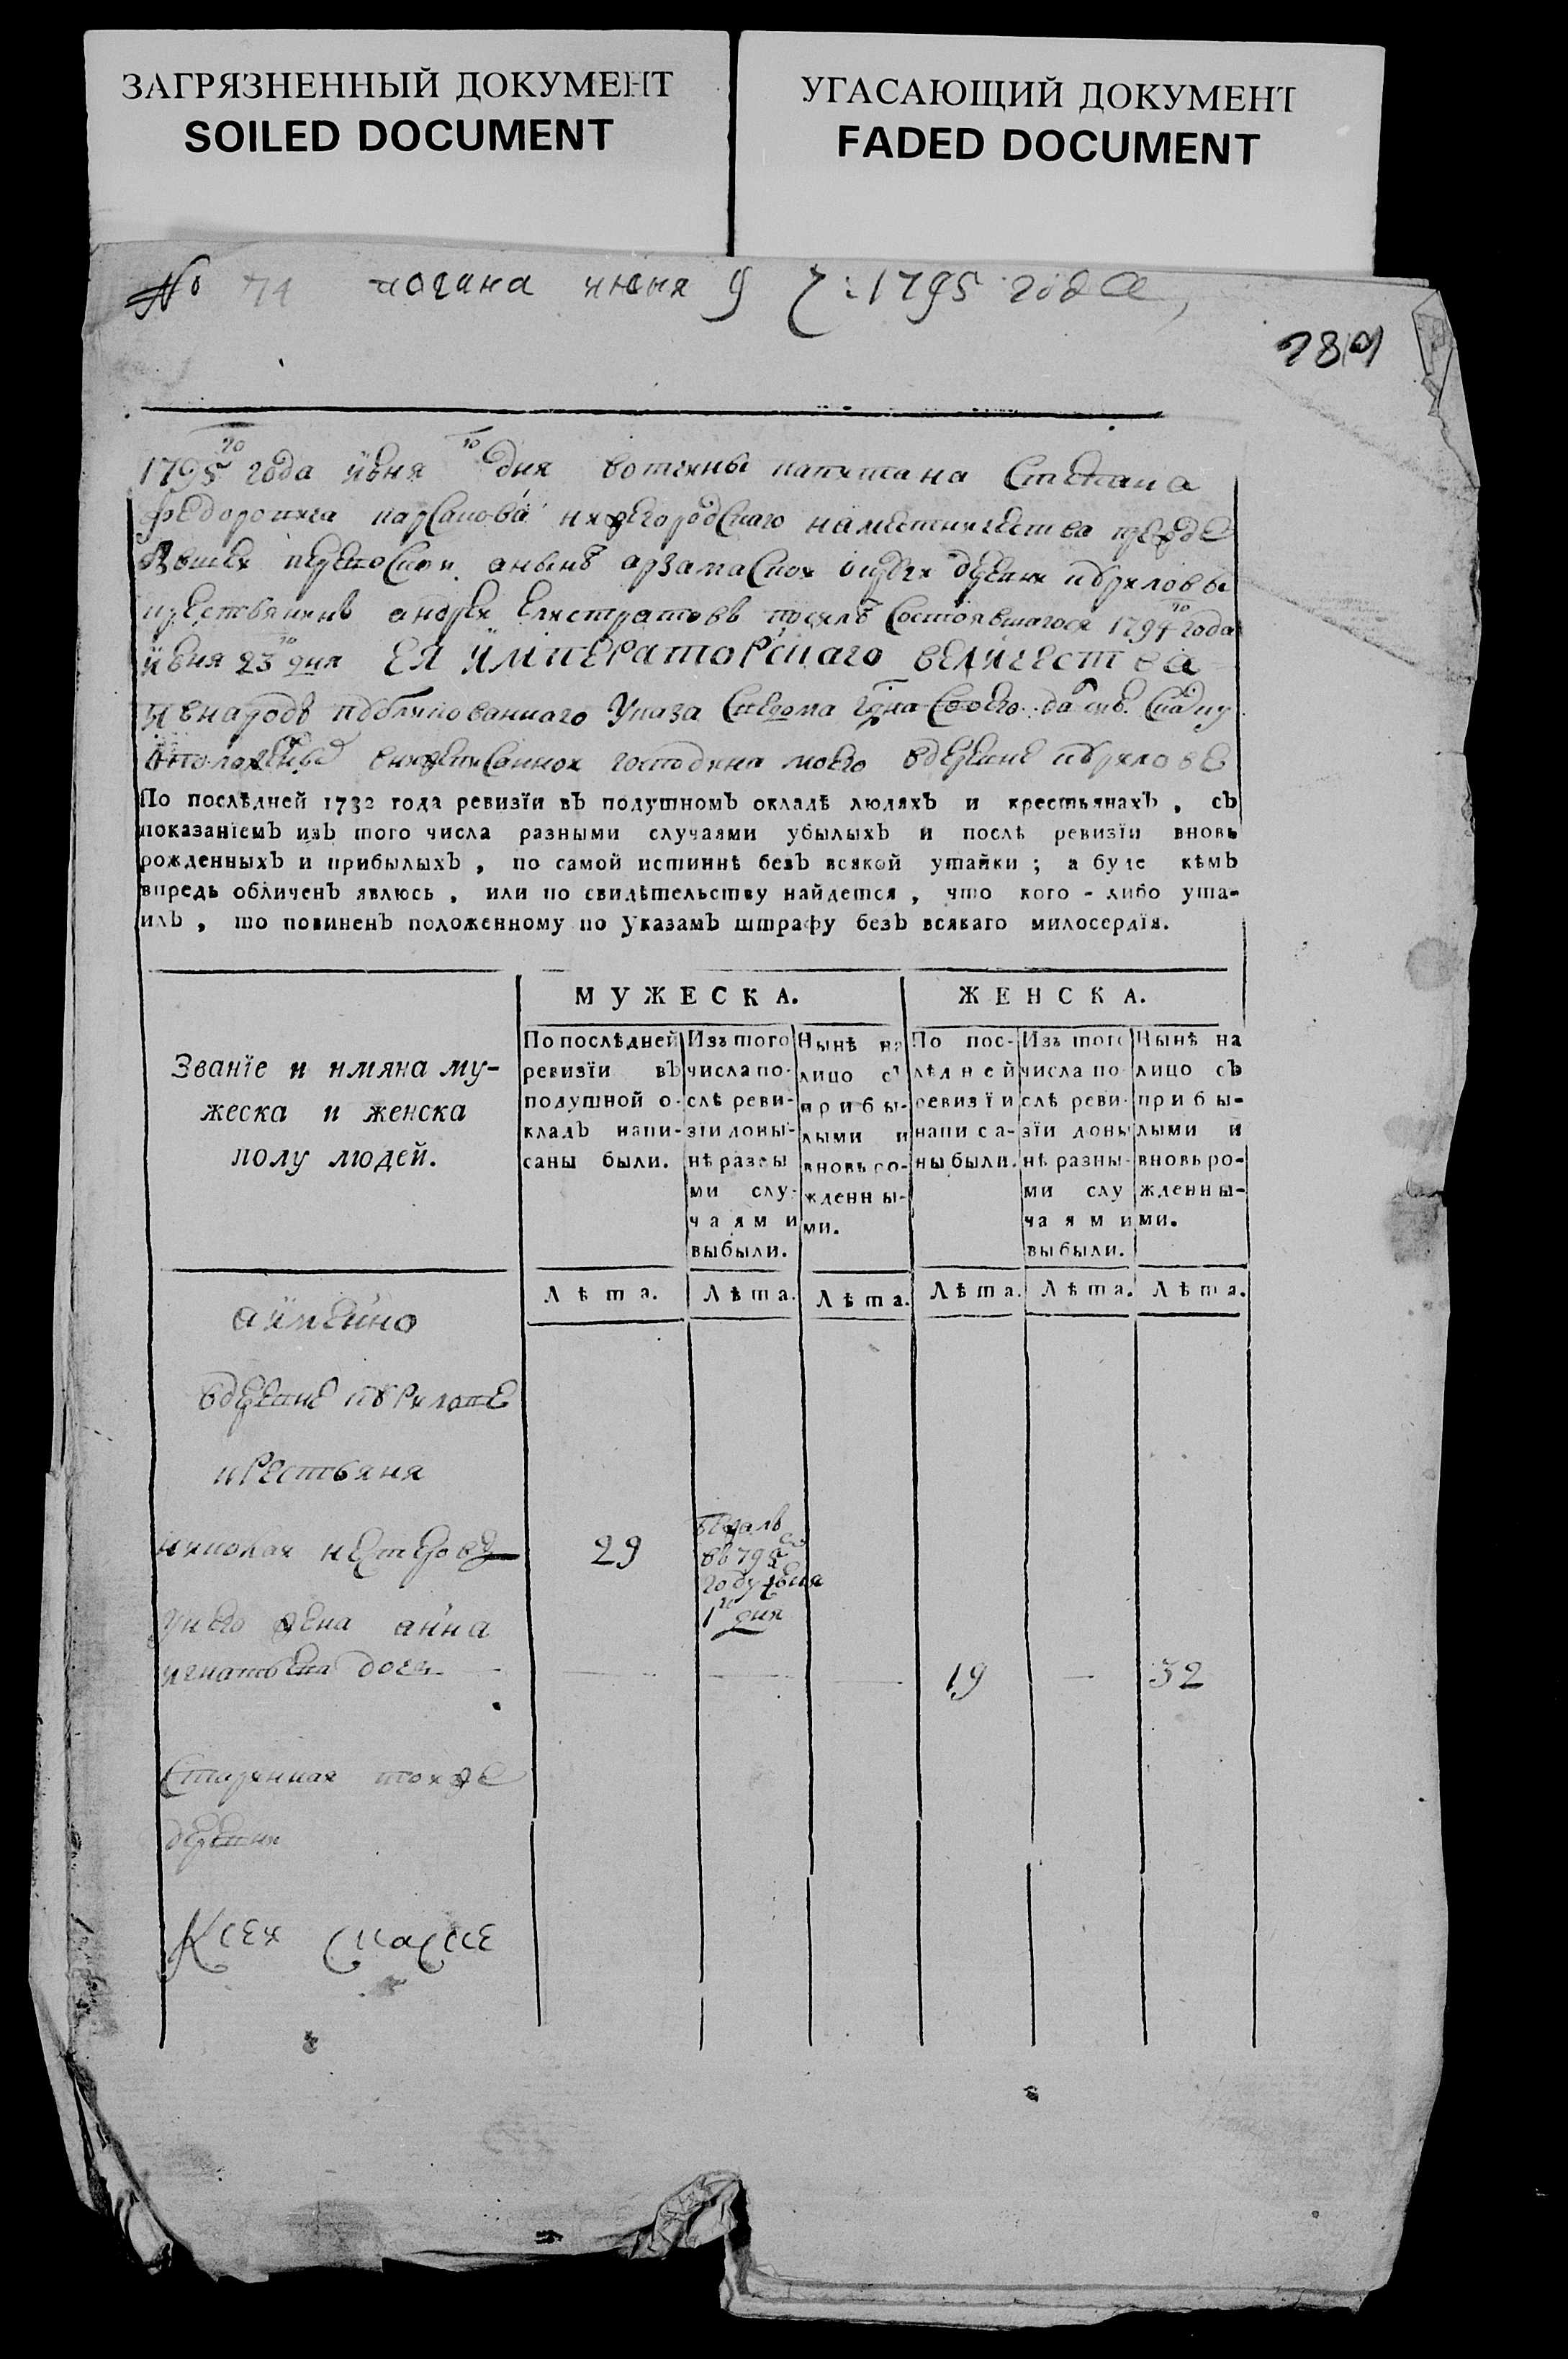 ЗАГРЯЗНЕННЫЙ ДОКУМЕНТ
SOILED DOCUMENT
УГАСАЮЩИЙ ДОКУМЕНТ
FADED DOCUMENT
№ 74 июня 9 ч: 1795 года
1795го года июня дня вотчины капитана Степана
Федоровича нижегородскаго наместничества прежде
а ныне арзамаской округи деревни
крестьянинъ андрей елистратовъ 1794го года
июня 23го дня ЕЯ ИМПЕРАТОРСКАГО ВЕЛИЧЕСТВА
и в народъ публикованнаго указа
господина моего в деревне
По послѣдней 1782 года ревизїи въ подушномъ окладѣ людяхъ и крестьянахъ, съ
показанїемъ изъ того числа разными случаями убылыхъ и послѣ ревизїи вновь
рожденныхъ и прибылыхъ, по самой истиннѣ безъ всякой утайки; а буде кѣмъ
впредь обличенъ явлюсь, или по свидѣтельству найдется, что кого-либо ута-
илъ, то повиненъ положенному по Указамъ штрафу безъ всякаго милосердїя.
Званїе и имяна му-
жеска и женска
полу людей.
МУЖЕСКА.
По послѣдней
ревизїи въ
подушной о-
кладъ напи-
саны были.
Изъ того
числа по-
слѣ реви-
зїи доны-
нѣ разны
ми слу-
чаями
выбыли.
Нынѣ на
лицо съ
прибы-
лыми и
вновь ро-
жденны-
ми.
ЖЕНСКА.
По пос-
лѣдней
ревизїи
написа-
ны были.
Изъ того
числа по
слѣ реви-
зїи доны
нѣ разны-
ми слу
чаями
выбыли.
Нынѣ на
лицо съ
прибы-
лыми и
вновь ро-
жденны-
ми.
Лѣта. Лѣта. Лѣта. Лѣта. Лѣта. Лѣта.
а имянно
в деревне
крестьяня
николай нестеровъ 29
бежалъ
въ 795
году июня
1го дня
у него жена анна
игнатьева дочь 19 32
старинная тоже
деревни
К сей скаске